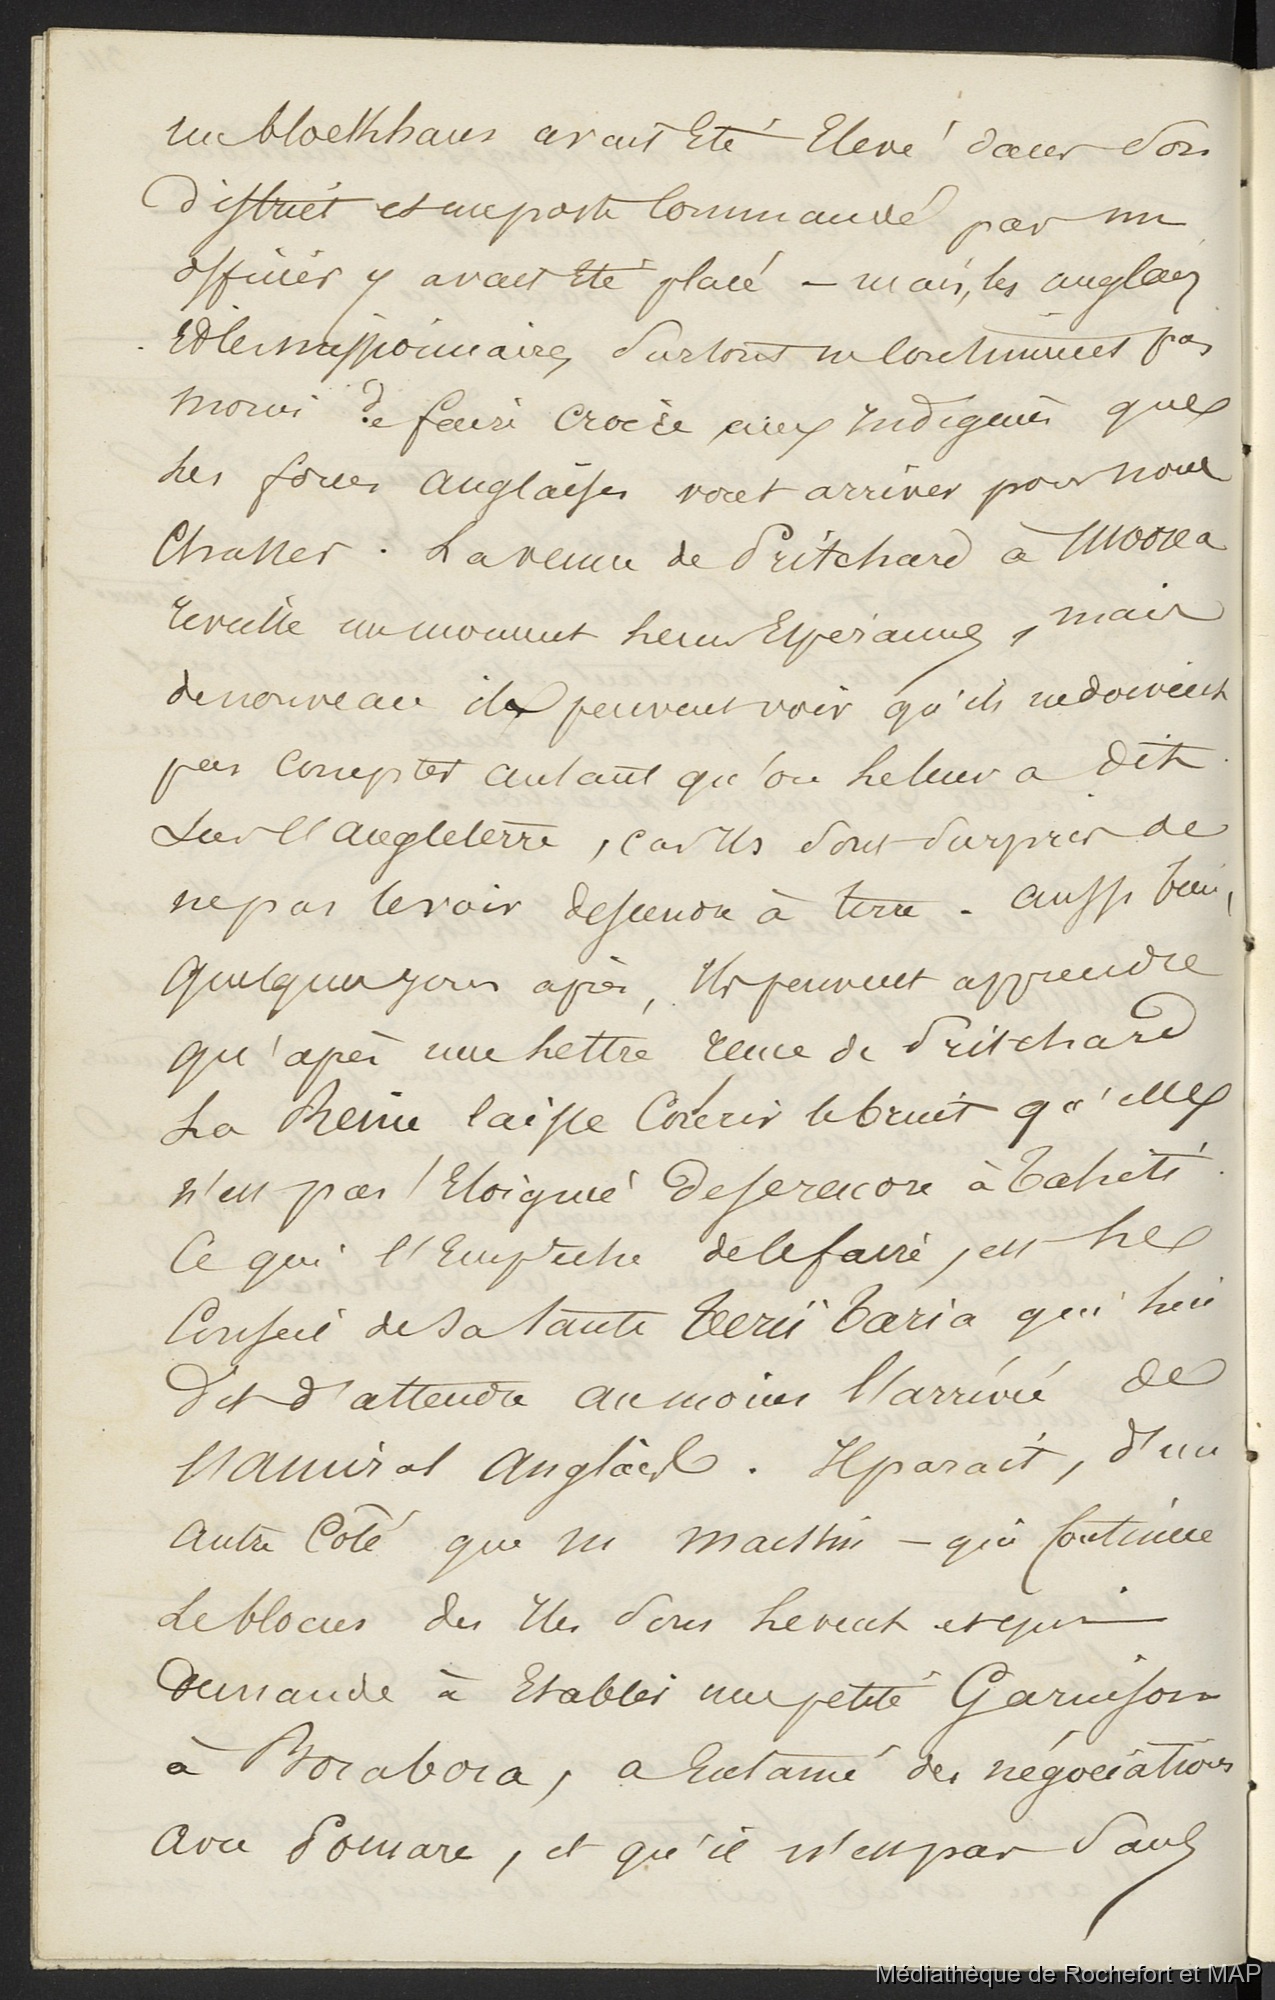 un blockhaus avait été Elevé dans son
district et un poste Commandé par un
officier y avait été placé – mais, les anglais
et les missionnaires surtout ne continuent pas
moins de faire croire aux indigenes que
les forces anglaises vont arriver pour nous
Chasser. La venue de Pritchard à Moorea
reveille un moment leurs Esperances, mais
de nouveau ils peuvent voir qu'ils ne doivent
pas compter autant qu'on le leur a dit
sur l'angleterre, car ils sont surpris de
ne pas le voir descendre à terre. aussi bien,
quelques jours après, ils peuvent apprendre
qu'après une lettre reçue de Pritchard
La Reine laisse Courir le bruit qu'elle
n'est pas Eloigné de se rendre à Tahiti
Ce qui l'Empêche de le faire, est le
Conseil de sa tante Terii Taria qui lui
dit d'attendre au moins l'arrivée de
l'amiral anglais. Il parait, d'un
autre Coté que M Massin – qui Continue
Le blocus des Iles sous le vent et qui
demande à Etablir une petite Garnison
à Borabora, a Entamé des négociations
avec Pomare, et qu'il n'est pas sans
Médiathèque de Rochefort et MAP